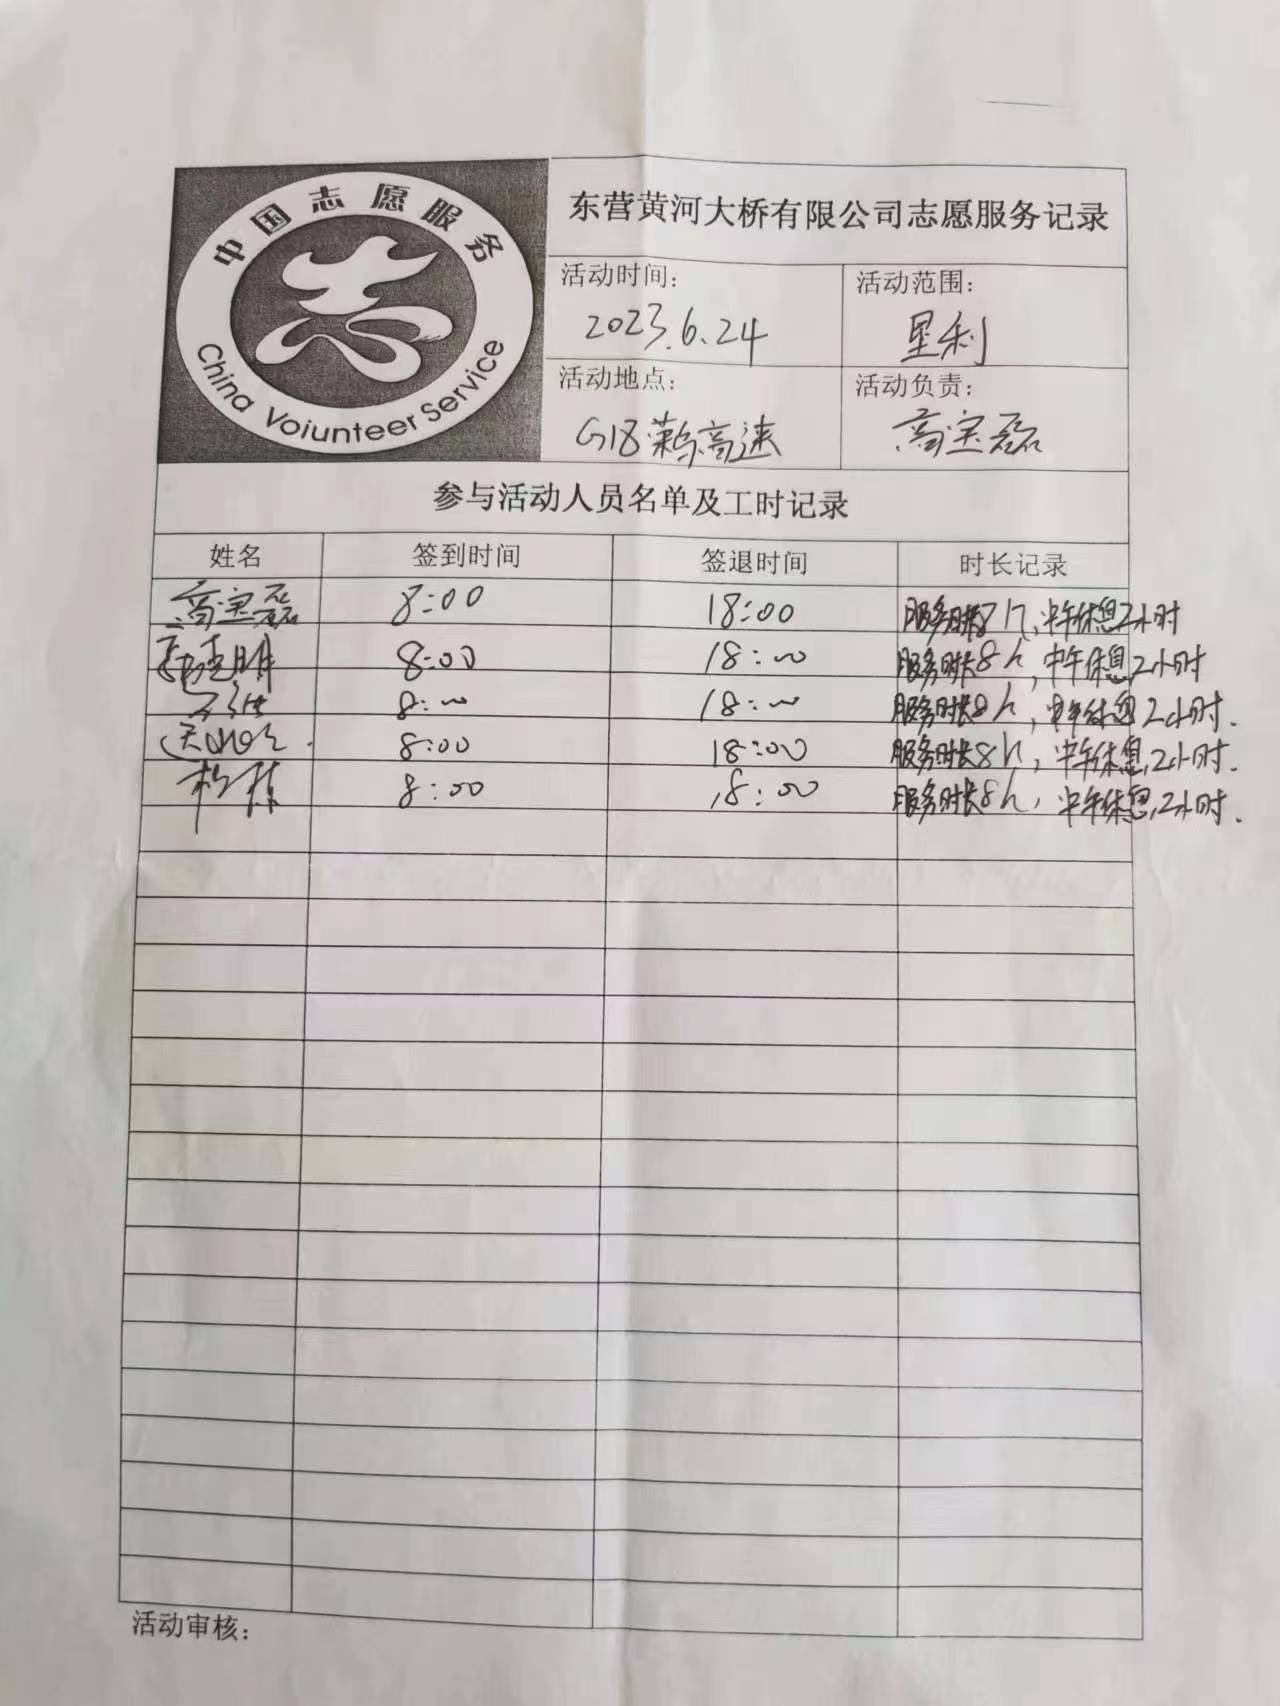 中国志愿服务
China Voiunteer Service
东营黄河大桥有限公司志愿服务记录
活动时间: 活动范围:
2023.6.24 垦利
活动地点: 活动负责:
G18荣乌高速 高宝磊
参与活动人员名单及工时记录
姓名 签到时间 签退时间 时长记录
高宝磊 8:00 18:00 服务时长8h,中午休息2小时
8:00 18:00 服务时长8h,中午休息,2小时
8:00 18:00 服务时长8h,中午休息2小时.
8:00 18:00 服务时长8h,中午休息,2小时.
8:00 18:00 服务时长8h,中午休息,2小时.
活动审核: